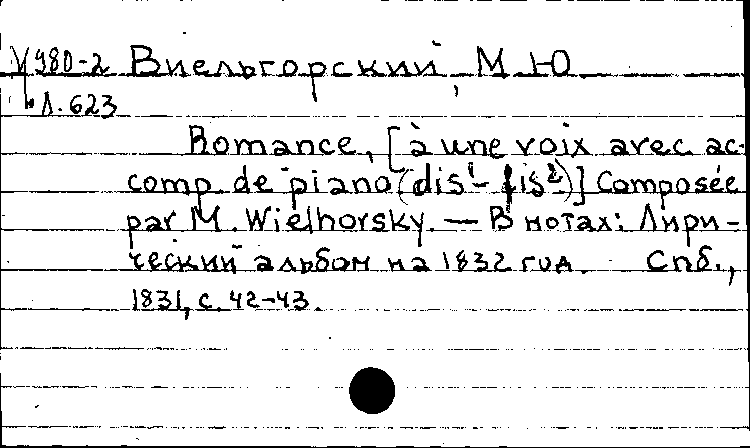 У980-2 Виельгорский, М.Ю.
Л.623
Romance, [à une voix avec ac-
comp. de piano (dis¹ - fis²)] Composée
par M. Wielhorsky. — В нотах: Лири-
ческий альбом на 1832 год. Спб.,
1831, с. 42-43.